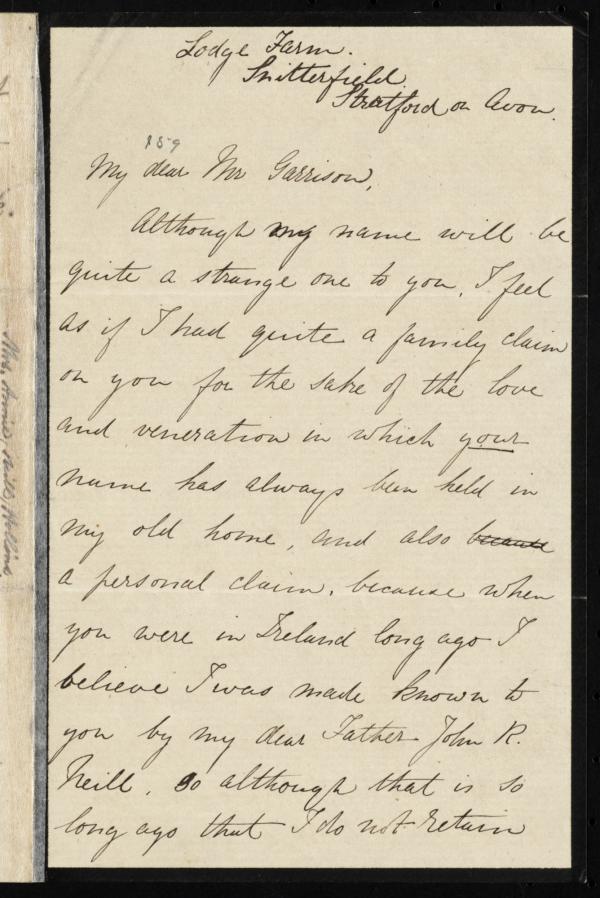 Lodge Farm.
Snitterfield
Stratford on Avon.
159
My dear Mr Garrison,
Although my name will be
quite a strange one to you, I feel
as if I had quite a family claim
on you for the sake of the love
and veneration in which your
name has always been held in
my old home, and also because
a personal claim, because when
you were in Ireland long ago I
believe I was made known to
you by my dear Father John R.
Neill. So although that is so
long ago that I do not retain
Mrs.